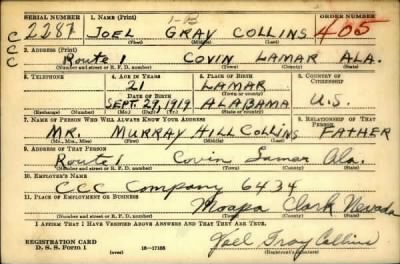 SERIAL NUMBER 1. NAME (Print) ORDER NUMBER
1-B
2281 JOEL GRAY COLLINS 405
(First) (Middle) (Last)
CCC
2. ADDRESS (Print)
Route 1 COVIN LAMAR ALA.
(Number and street or R. F. D. number) (Town) (County) (State)
3. TELEPHONE 4. AGE IN YEARS 5. PLACE OF BIRTH 6. COUNTRY OF CITIZENSHIP
21 LAMAR
DATE OF BIRTH (Town or county)
SEPT. 29, 1919 ALABAMA U.S.
(Exchange) (Number) (Mo.) (Day) (Yr.) (State or country)
7. NAME OF PERSON WHO WILL ALWAYS KNOW YOUR ADDRESS 8. RELATIONSHIP OF THAT PERSON
MR. MURRAY HILL COLLINS FATHER
(Mr., Mrs., Miss) (First) (Middle) (Last)
9. ADDRESS OF THAT PERSON
Route 1 Covin Lamar Ala.
(Number and street or R. F. D. number) (Town) (County) (State)
10. EMPLOYER'S NAME
CCC Company 6434
11. PLACE OF EMPLOYMENT OR BUSINESS
Moapa Clark Nevada
(Number and street or R. F. D. number) (Town) (County) (State)
I AFFIRM THAT I HAVE VERIFIED ABOVE ANSWERS AND THAT THEY ARE TRUE.
REGISTRATION CARD
D. S. S. Form 1 (over) 16—17105
Joel Gray Collins
(Registrant's signature)